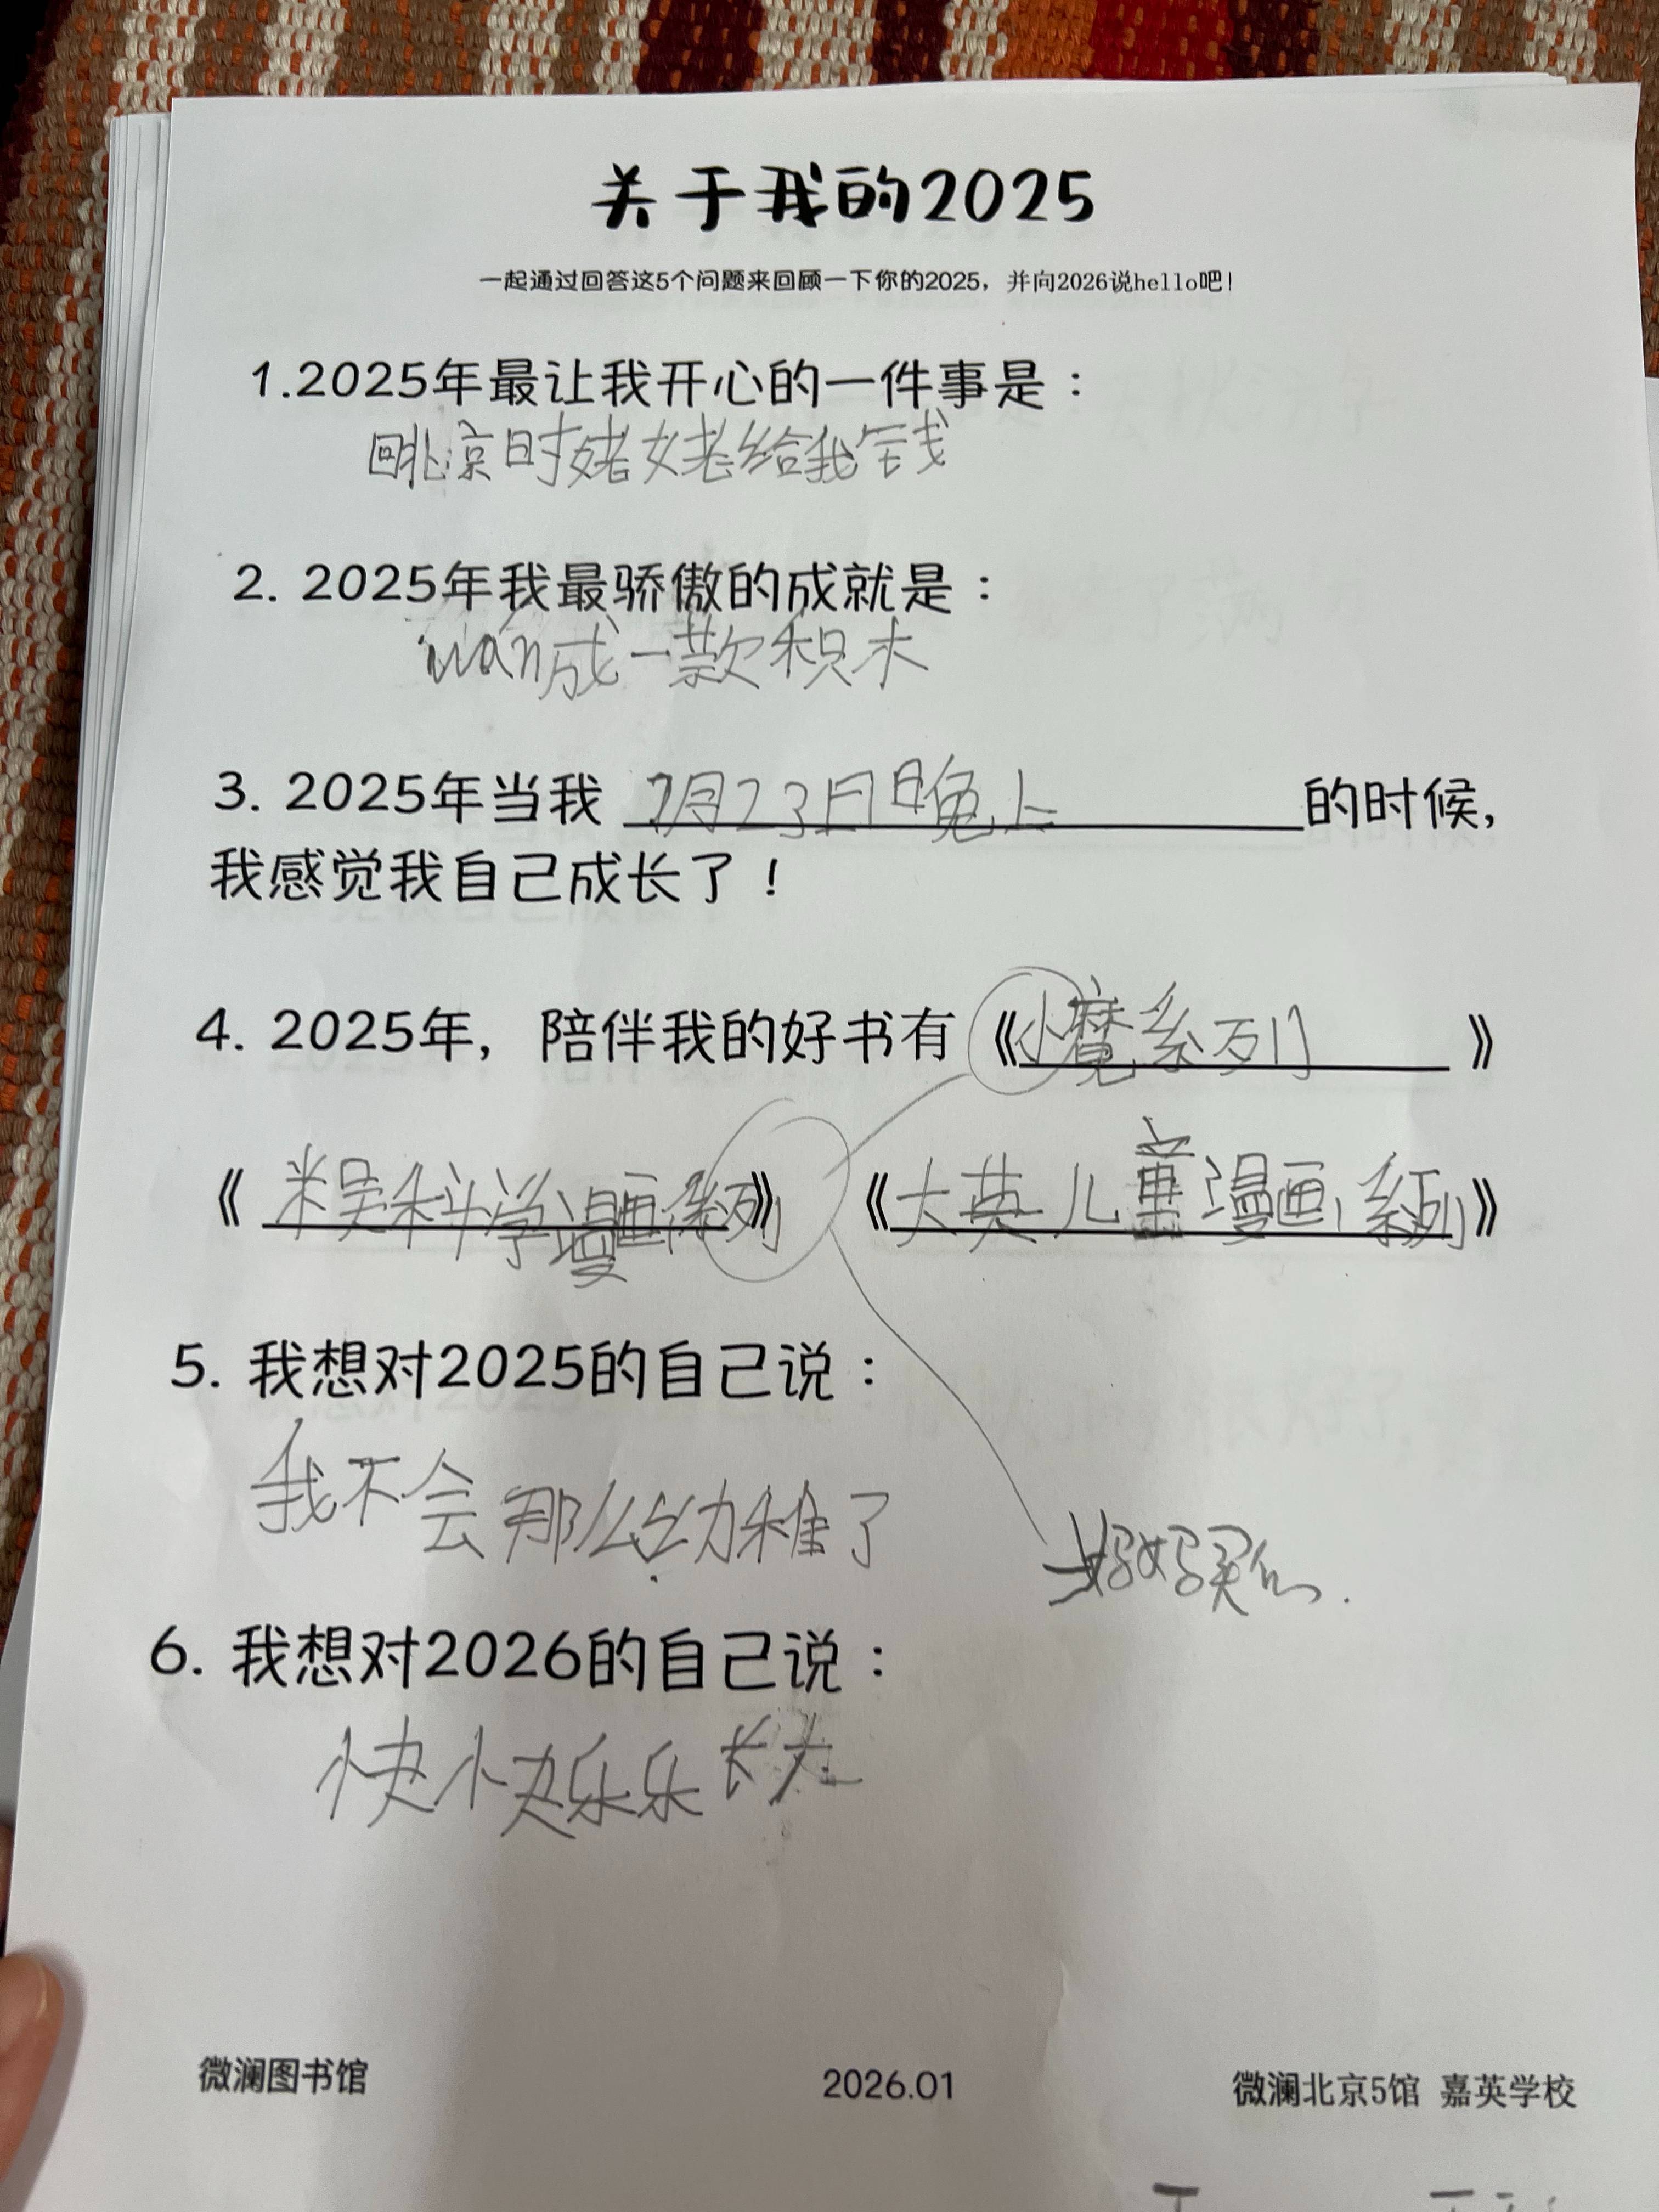 关于我的2025
一起通过回答这5个问题来回顾一下你的2025，并向2026说hello吧！
1.2025年最让我开心的一件事是：
回北京时姥姥给我钱
2. 2025年我最骄傲的成就是：
wan成一款积木
3. 2025年当我 7月23日晚上 的时候，
我感觉我自己成长了！
4. 2025年，陪伴我的好书有《小魔系列》
《米吴科学漫画系列》《大英儿童漫画系列》
5. 我想对2025的自己说：
我不会那么幼稚了
妈妈买
6. 我想对2026的自己说：
快快乐乐长大
微澜图书馆 2026.01 微澜北京5馆 嘉英学校